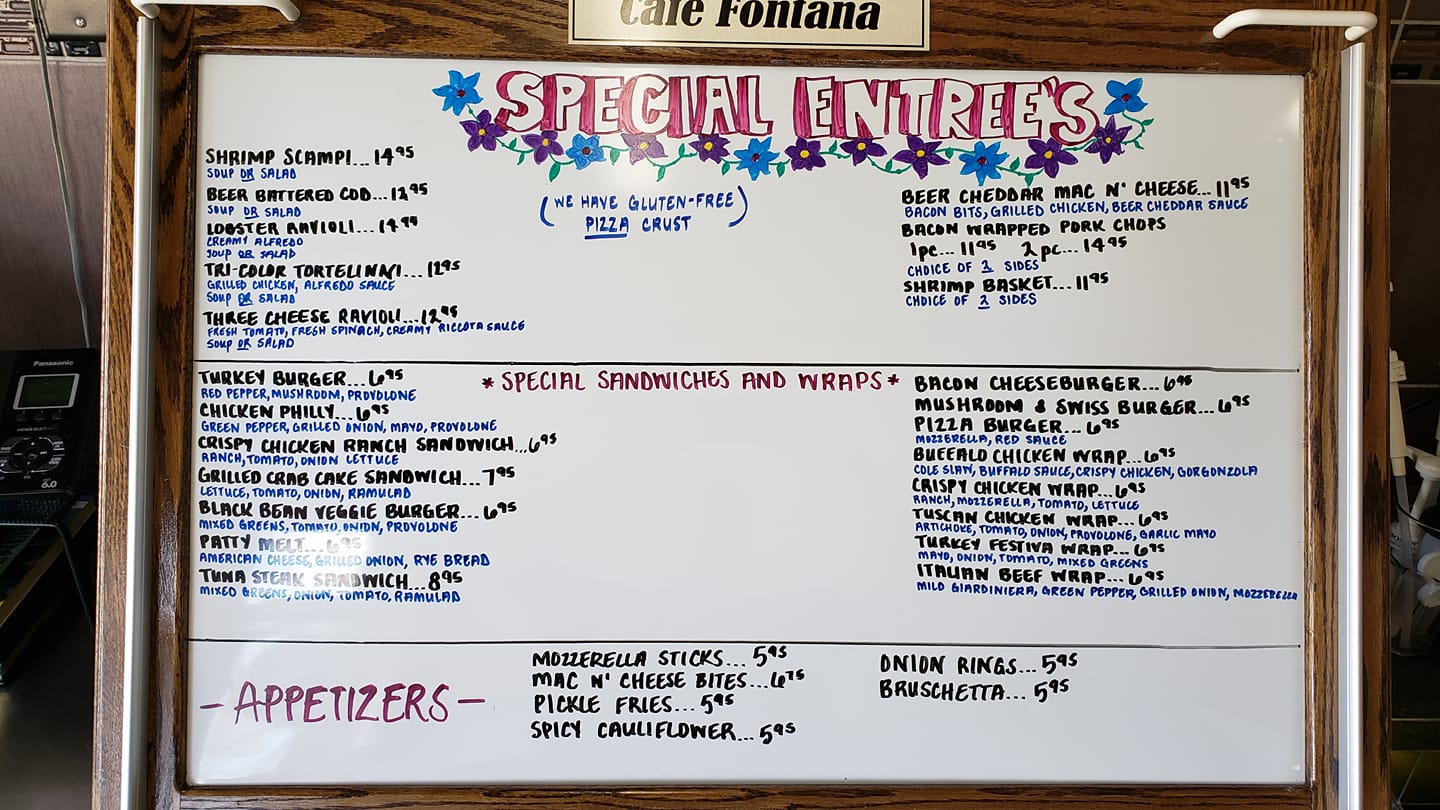 Cafe Fontana
SPECIAL ENTREE'S
SHRIMP SCAMPI... 14.95
SOUP OR SALAD
BEER BATTERED COD... 12.95
SOUP OR SALAD
LOBSTER RAVIOLI... 14.95
CREAMY ALFREDO
SOUP OR SALAD
TRI-COLOR TORTELINNI... 12.95
GRILLED CHICKEN, ALFREDO SAUCE
SOUP OR SALAD
THREE CHEESE RAVIOLI... 12.95
FRESH TOMATO, FRESH SPINACH, CREAMY RICCOTA SAUCE
SOUP OR SALAD
(WE HAVE GLUTEN-FREE
PIZZA CRUST)
BEER CHEDDAR MAC N' CHEESE... 11.95
BACON BITS, GRILLED CHICKEN, BEER CHEDDAR SAUCE
BACON WRAPPED PORK CHOPS
1pc... 11.95 2pc... 14.95
CHOICE OF 2 SIDES
SHRIMP BASKET... 11.95
CHOICE OF 2 SIDES
*SPECIAL SANDWICHES AND WRAPS*
TURKEY BURGER... 6.95
RED PEPPER, MUSHROOM, PROVOLONE
CHICKEN PHILLY... 6.95
GREEN PEPPER, GRILLED ONION, MAYO, PROVOLONE
CRISPY CHICKEN RANCH SANDWICH... 6.95
RANCH, TOMATO, ONION LETTUCE
GRILLED CRAB CAKE SANDWICH... 7.95
LETTUCE, TOMATO, ONION, RAMULAD
BLACK BEAN VEGGIE BURGER... 6.95
MIXED GREENS, TOMATO, ONION, PROVOLONE
PATTY MELT... 6.95
AMERICAN CHEESE, GRILLED ONION, RYE BREAD
TUNA STEAK SANDWICH... 8.95
MIXED GREENS, ONION, TOMATO, RAMULAD
BACON CHEESEBURGER... 6.95
MUSHROOM & SWISS BURGER... 6.95
PIZZA BURGER... 6.95
MOZZERELLA, RED SAUCE
BUFFALO CHICKEN WRAP... 6.95
COLE SLAW, BUFFALO SAUCE, CRISPY CHICKEN, GORGONZOLA
CRISPY CHICKEN WRAP... 6.95
RANCH, MOZZERELLA, TOMATO, LETTUCE
TUSCAN CHICKEN WRAP... 6.95
ARTICHOKE, TOMATO, ONION, PROVOLONE, GARLIC MAYO
TURKEY FESTIVA WRAP... 6.95
MAYO, ONION, TOMATO, MIXED GREENS
ITALIAN BEEF WRAP... 6.95
MILD GIARDINIERA, GREEN PEPPER, GRILLED ONION, MOZZERELLA
-APPETIZERS-
MOZZERELLA STICKS... 5.95
MAC N' CHEESE BITES... 6.75
PICKLE FRIES... 5.95
SPICY CAULIFLOWER... 5.95
ONION RINGS... 5.95
BRUSCHETTA... 5.95
Panasonic
6.0